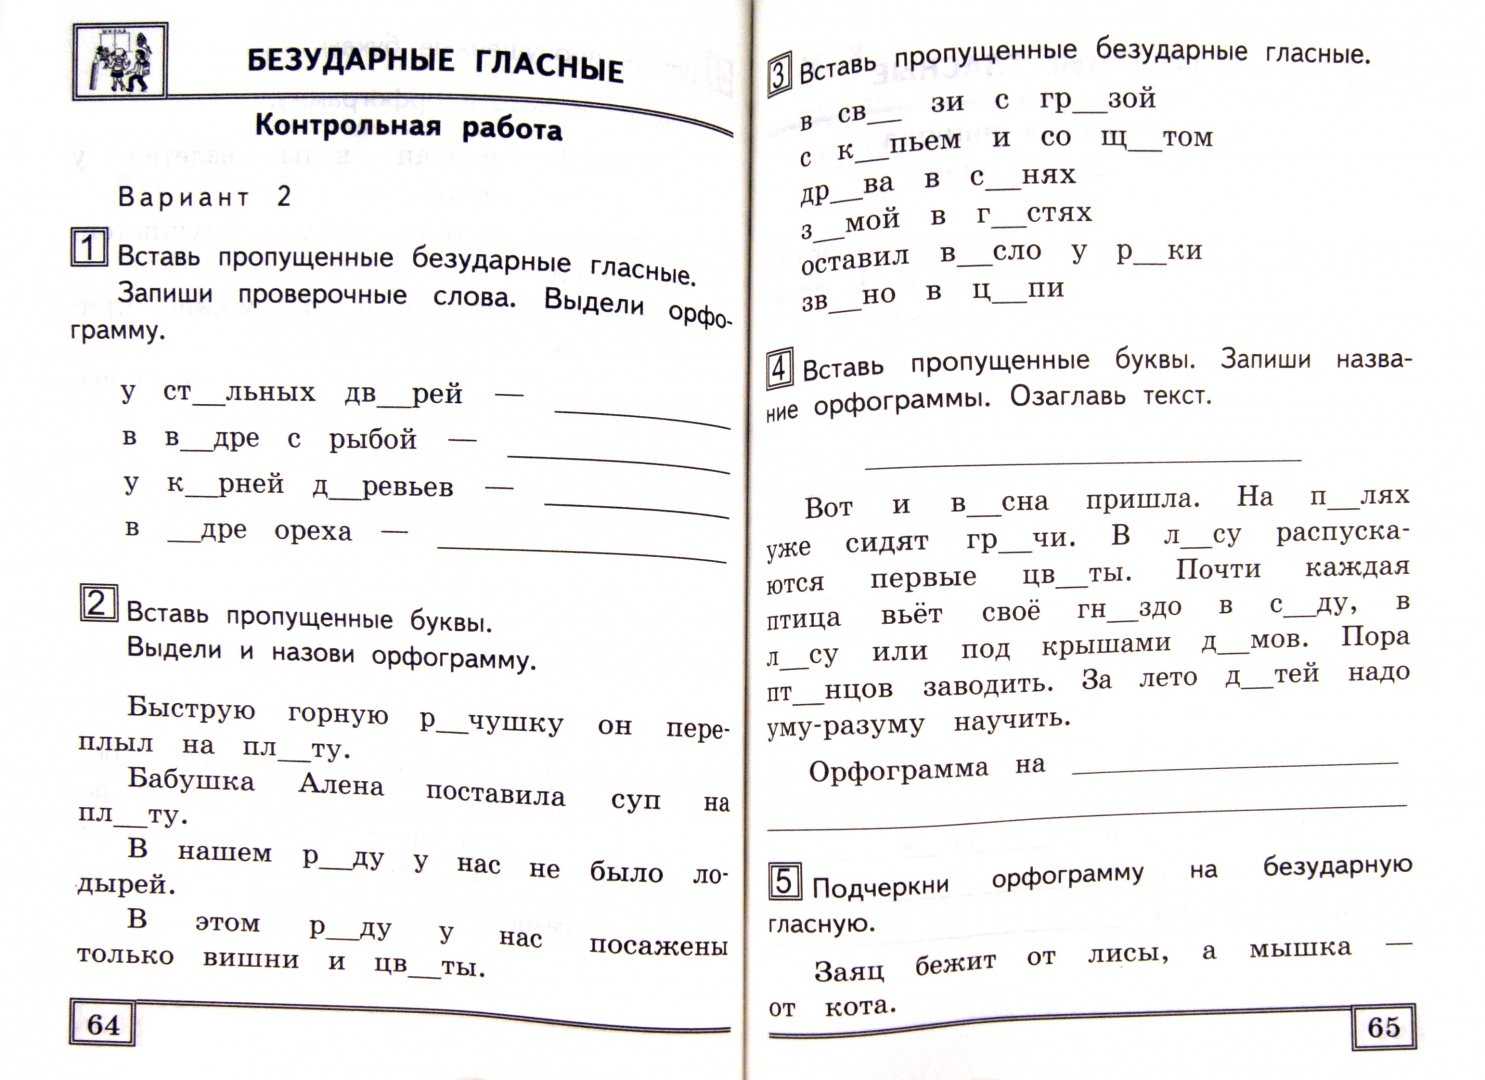 БЕЗУДАРНЫЕ ГЛАСНЫЕ
Контрольная работа
Вариант 2
1 Вставь пропущенные безударные гласные.
Запиши проверочные слова. Выдели орфо-
грамму.
у ст__льных дв__рей —
в в__дре с рыбой —
у к__рней д__ревьев —
в __дре ореха —
2 Вставь пропущенные буквы.
Выдели и назови орфограмму.
Быструю горную р__чушку он пере-
плыл на пл__ту.
Бабушка Алена поставила суп на
пл__ту.
В нашем р__ду у нас не было ло-
дырей.
В этом р__ду у нас посажены
только вишни и цв__ты.
64
3 Вставь пропущенные безударные гласные.
в св__ зи с гр__зой
с к__пьем и со щ__том
др__ва в с__нях
з__мой в г__стях
оставил в__сло у р__ки
зв__но в ц__пи
4 Вставь пропущенные буквы. Запиши назва-
ние орфограммы. Озаглавь текст.
Вот и в__сна пришла. На п__лях
уже сидят гр__чи. В л__су распуска-
ются первые цв__ты. Почти каждая
птица вьёт своё гн__здо в с__ду, в
л__су или под крышами д__мов. Пора
пт__нцов заводить. За лето д__тей надо
уму-разуму научить.
Орфограмма на
5 Подчеркни орфограмму на безударную
гласную.
Заяц бежит от лисы, а мышка —
от кота.
65